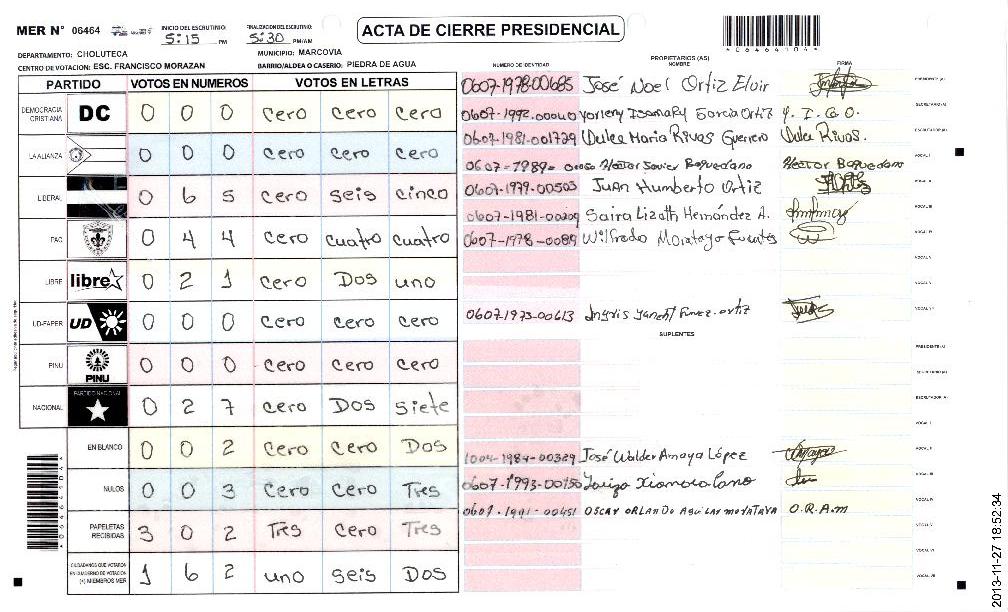 MER N° 06464 INICIO DEL ESCRUTINIO: 5:15 PM FINALIZACION DEL ESCRUTINIO: 5:30 PM/AM ACTA DE CIERRE PRESIDENCIAL
DEPARTAMENTO: CHOLUTECA MUNICIPIO: MARCOVIA
CENTRO DE VOTACION: ESC. FRANCISCO MORAZAN BARRIO/ALDEA O CASERIO: PIEDRA DE AGUA
PARTIDO VOTOS EN NUMEROS VOTOS EN LETRAS
DEMOCRACIA CRISTIANA DC 0 0 0 cero cero cero
LA ALIANZA 0 0 0 cero cero cero
LIBERAL 0 6 5 cero seis cinco
PAC 0 4 4 cero cuatro cuatro
LIBRE libre 0 2 1 cero Dos uno
UD-FAPER UD 0 0 0 cero cero cero
PINU PINU 0 0 0 cero cero cero
NACIONAL PARTIDO NACIONAL 0 2 7 cero Dos siete
EN BLANCO 0 0 2 cero cero Dos
NULOS 0 0 3 cero cero Tres
PAPELETAS RECIBIDAS 3 0 2 Tres cero Tres
CIUDADANOS QUE VOTARON EN CUADERNO DE VOTACION (+) MIEMBROS MER 1 6 2 uno seis Dos
PROPIETARIOS (AS)
NUMERO DE IDENTIDAD NOMBRE FIRMA
0607-1978-00685 José Noel Ortiz Elvir PRESIDENTE (A)
SECRETARIO (A)
0607-1992-00040 Garcia Ortiz Y. I. G. O.
ESCRUTADOR (A)
0607-1981-001729 Dulce Maria Rivas Guerrero Dulce Rivas.
VOCAL I
0607-1989- Hector Javier Baquedano Hector Baquedano
0607-1979-00503 Juan Humberto Ortiz VOCAL II
0607-1981-00209 Saira Lizeth Hernández A. VOCAL III
0607-1978-0089 Wilfredo Fuentes VOCAL IV
VOCAL V
VOCAL VI
0607-1973-00613 ortiz VOCAL VII
SUPLENTES
PRESIDENTE (A)
SECRETARIO (A)
ESCRUTADOR (A)
VOCAL I
1004-1984-00329 José Walder Amaya López VOCAL II
0607-1993-00150 Xiomara Cano VOCAL III
VOCAL IV
0607-1991-00451 OSCAR ORLANDO AGUILAR O.R.A.M
VOCAL V
VOCAL VI
VOCAL VII
2013-11-27 18:52:34